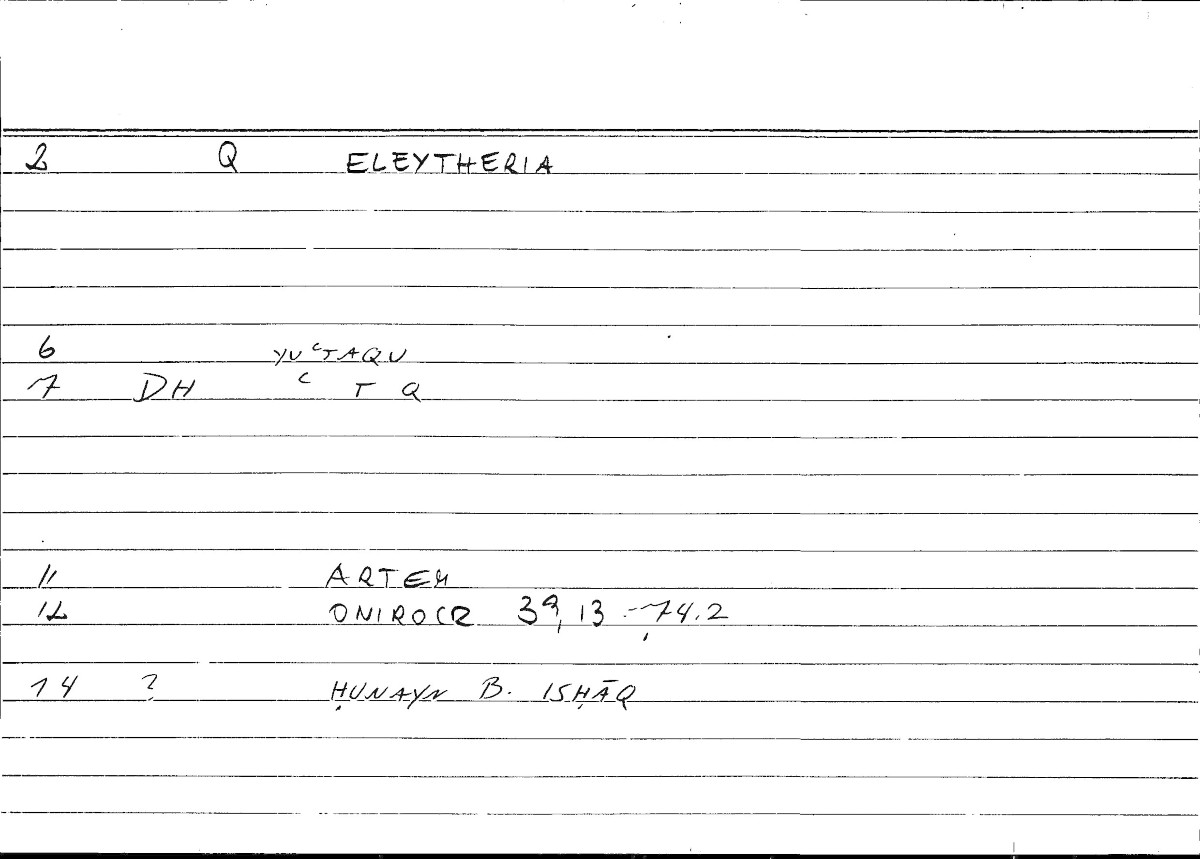 2 Q ELEYTHERIA
6 YUʿTAQU
7 DH ʿ T Q
11 ARTEM
12 ONIROCR 39,13 - 74.2
14 ? ḤUNAYN B. ISḤĀQ